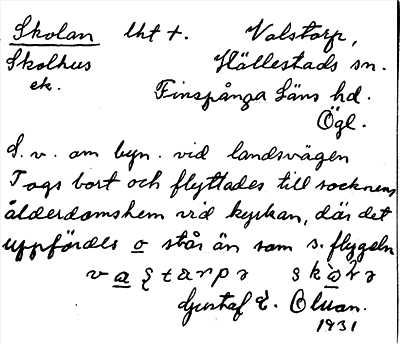 Skolan lht +. Valstorp,
Skolhus Hällestads sn.
ek. Finspånga läns hd.
Ögl.
S. v. om byn. vid landsvägen
Togs bort och flyttades till socknens
ålderdomshem vid kyrkan, där det
uppfördes o står än som s. flygeln
Gustaf E. Oluan.
1931